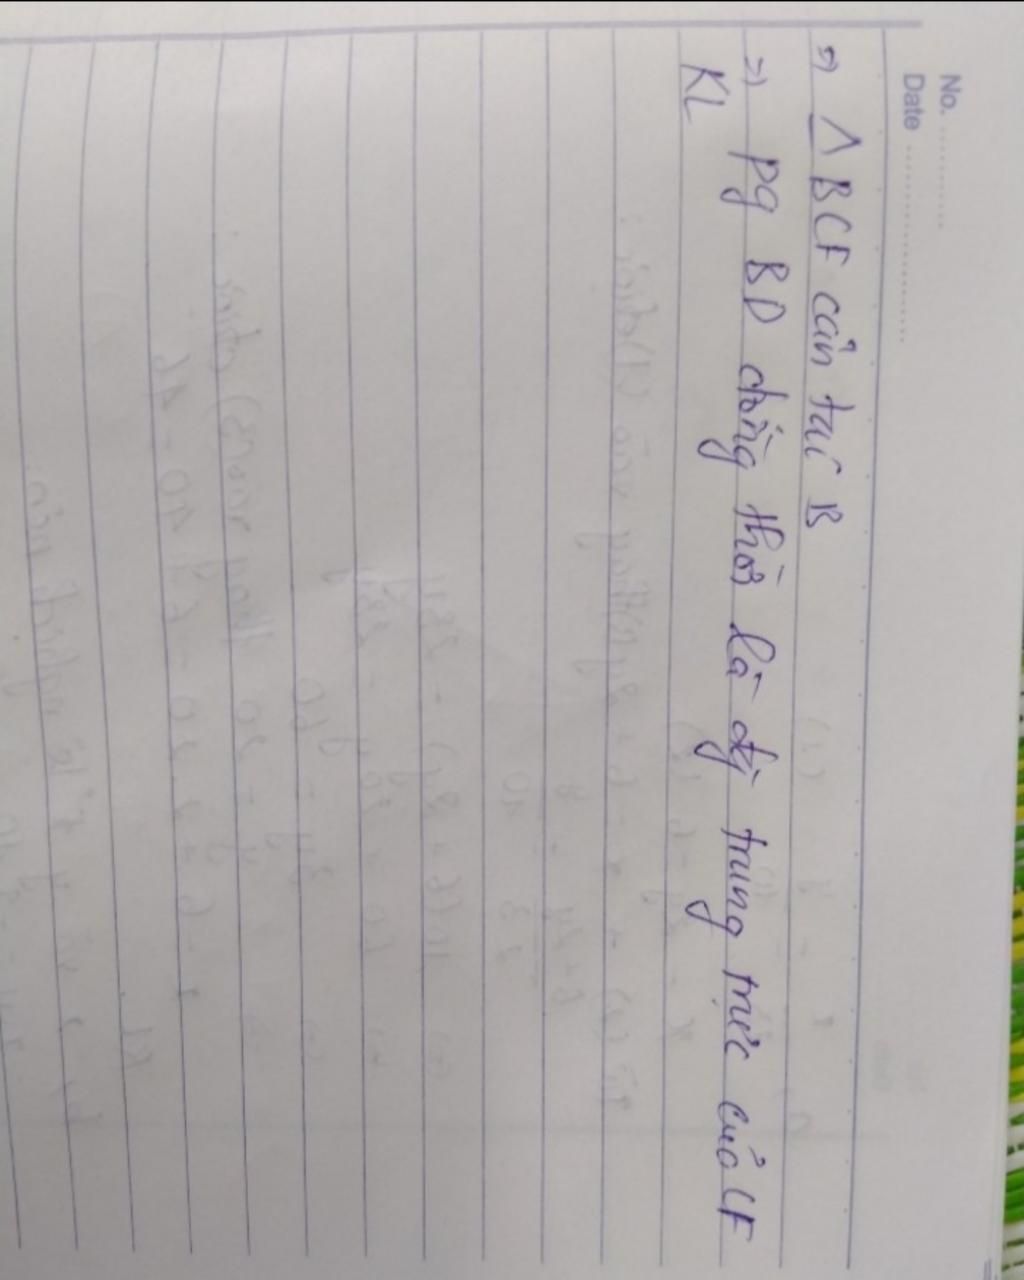 No. ............
Date ......................
=> △ BCF cân tại B
=> pg BD đồng thời là đg trung trực của CF
KL